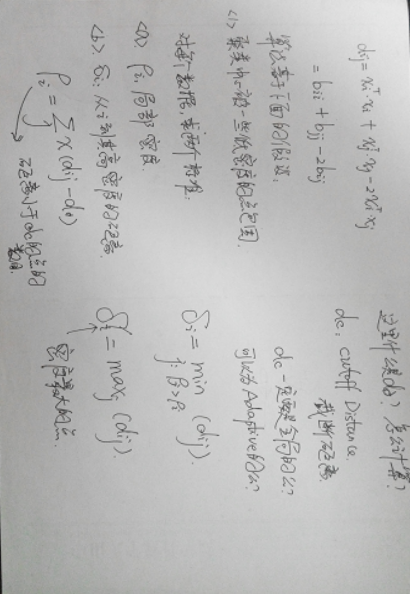 dij = xiᵀ·xi + xjᵀ·xj - 2xiᵀ·xj
= bii + bjj - 2bij
算法基于下面的假设:
<1> 聚类中心被一些低密度的点包围.
对每个数据,求两个数据.
<a> ρi, 局部密度.
<b> δi: 从i到其高密度的距离.
ρi = Σj X(dij - dc)
距离小于dc的点的数目
这里什么是dc? 怎么计算?
dc: cutoff Distance.
截断距离
dc一定要是全局的么?
可以为Adaptive的么?
δi = min (dij).
j: ρj > ρi
δi = maxj (dij).
密度最大的点.